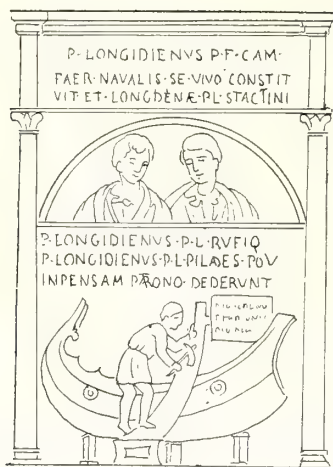 P · LONGIDIENVS P · F · CAM ·
FABR · NAVALIS · SE · VIVO CONSTIT
VIT · ET · LONGIDIENÆ · P · L · STACTINI
P · LONGIDIENVS · P · L · RVFIO
P · LONGIDIENVS · P · L · PILADES · POV
INPENSAM PATRONO · DEDERUNT